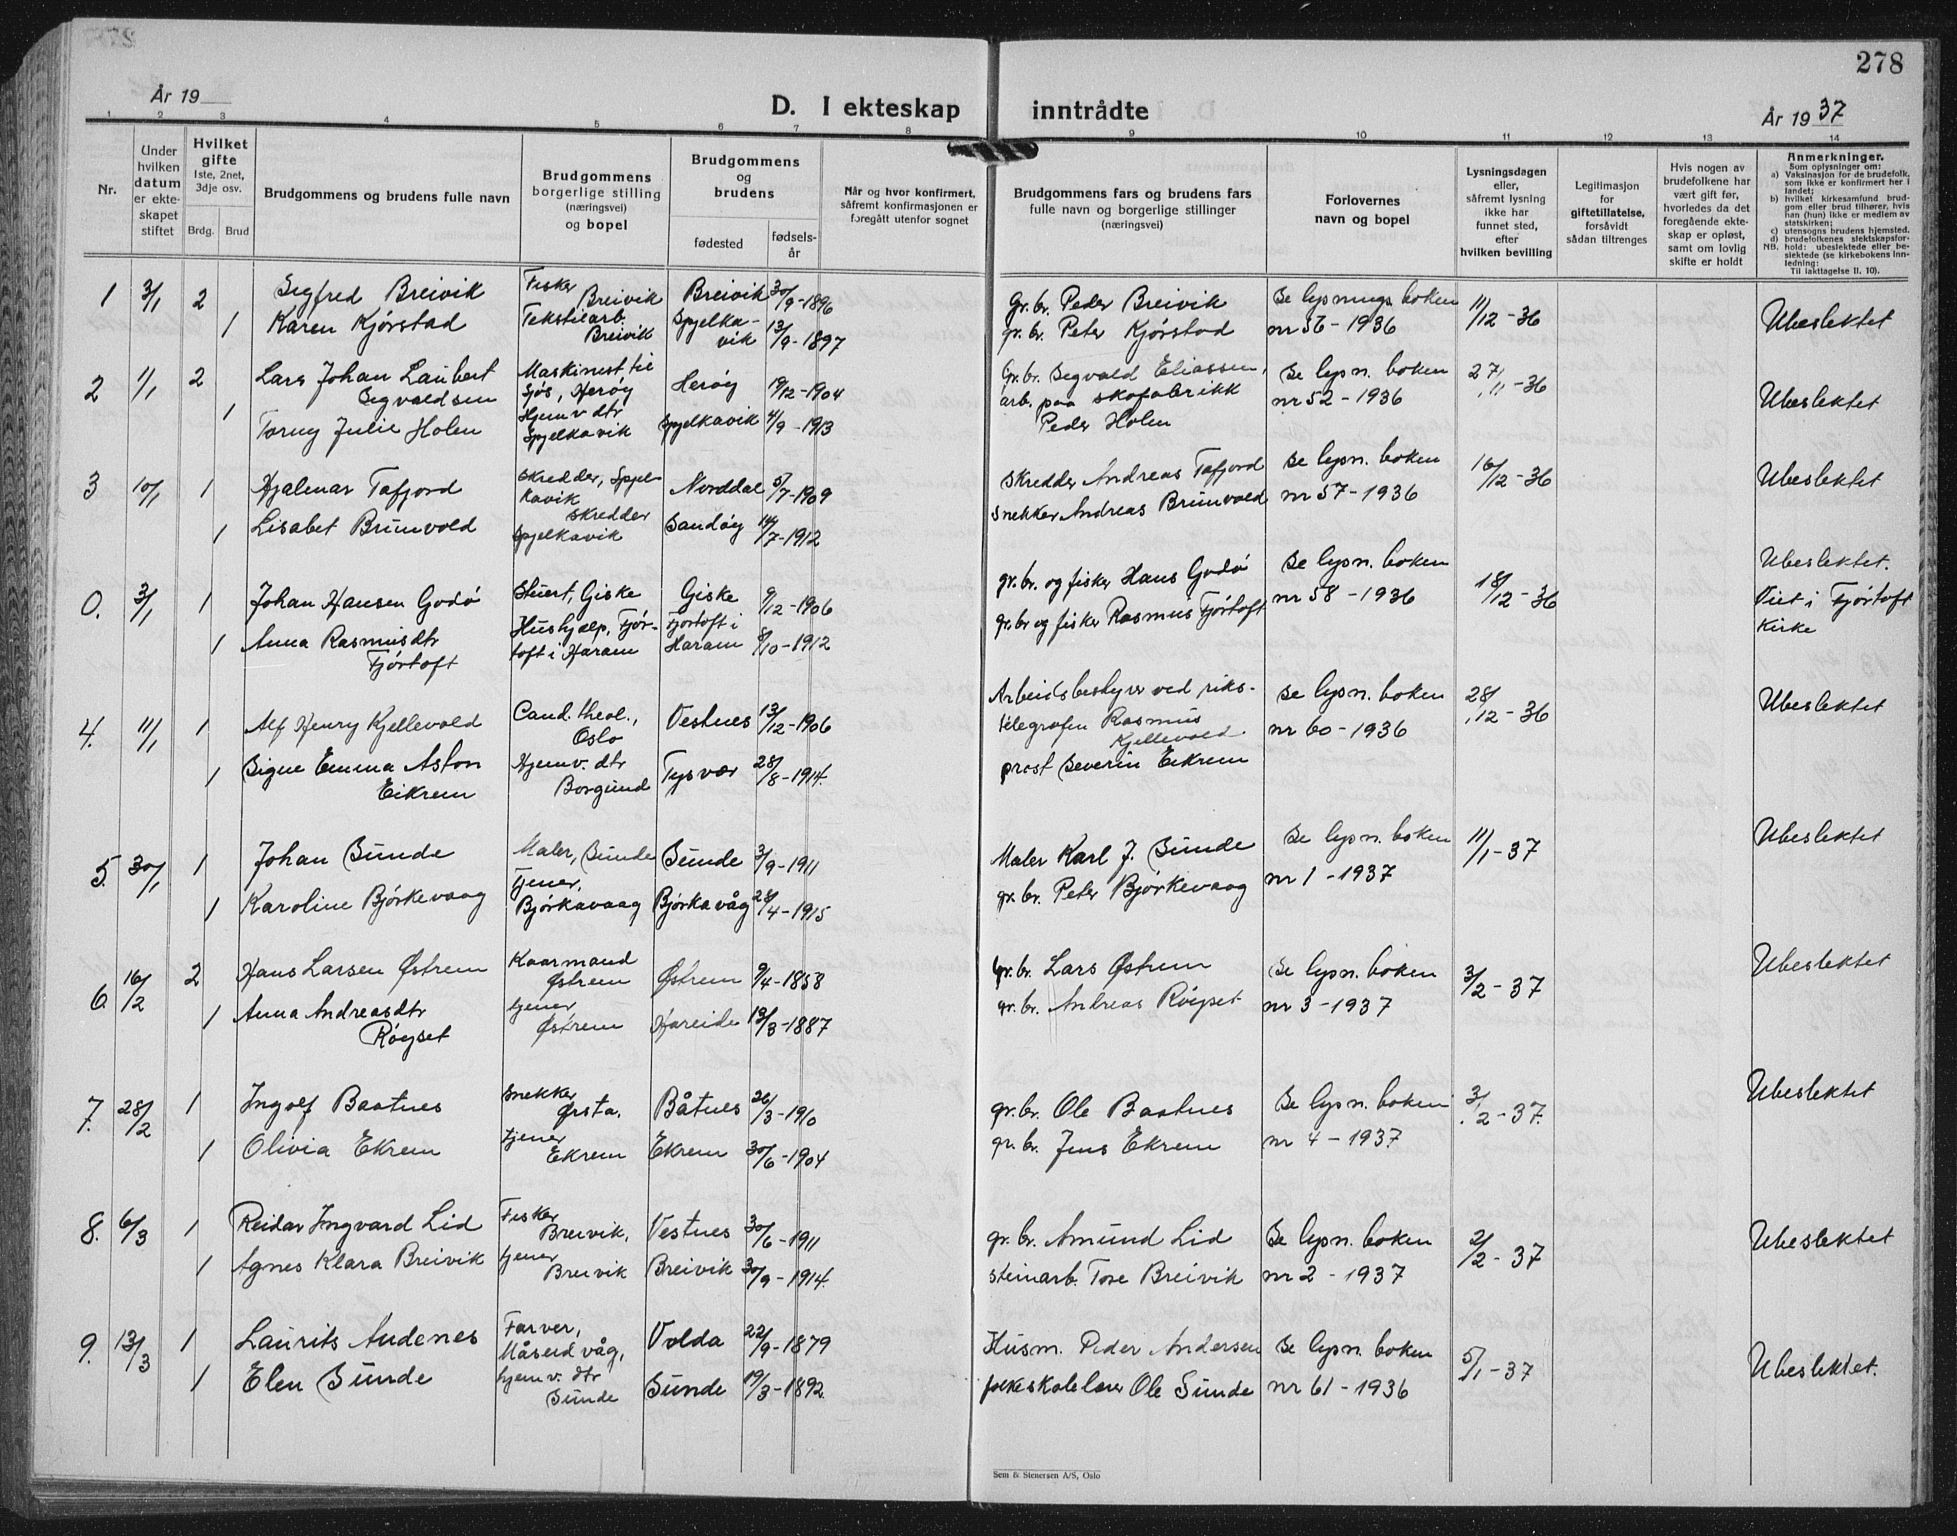 278
År 19
D. I ekteskap inntrådte
År 1937
1 2 3 4 5 6 7 8 9 10 11 12 13 14
Nr.
Under hvilken datum er ekteskapet stiftet
Hvilket gifte 1ste, 2net, 3dje osv.
Brdg. Brud
Brudgommens og brudens fulle navn
Brudgommens borgerlige stilling (næringsvei) og bopel
Brudgommens og brudens
fødested
fødselsår
Når og hvor konfirmert, såfremt konfirmasjonen er foregått utenfor sognet
Brudgommens fars og brudens fars fulle navn og borgerlige stillinger (næringsvei)
Forlovernes navn og bopel
Lysningsdagen eller, såfremt lysning ikke har funnet sted, efter hvilken bevilling
Legitimasjon for giftetillatelse, forsåvidt sådan tiltrenges
Hvis nogen av brudefolkene har vært gift før, hvorledes da det foregående ekteskap er opløst, samt om lovlig skifte er holdt
Anmerkninger.
Som oplysninger om:
a) Vaksinasjon for de brudefolk, som ikke er konfirmert her i landet;
b) hvilket kirkesamfund brudgom eller brud tilhører, hvis han (hun) ikke er medlem av statskirken;
c) utensogns brudens hjemsted.
d) brudefolkenes slektskapsforhold: ubeslektede eller beslektede (se kirkebokens innledning:
NB.
Til iakttagelse II. 10).
1 3/1 2 Sigfred Breivik Fisker Breivik Breivik 30/9-1896 gr. br. Peder Breivik Se lysnings boken 11/12-36 Ubeslektet
1 Karen Kjørstad Tekstilarb. Breivik Spjelkavik 13/9-1897 gr. br. Peter Kjørstad nr 56-1936
2 1/1 2 Lars Johan Laubert Sigvaldsen Maskinist til Sjøs, Herøy Herøy 19/12-1904 Gr. br. Sigvald Eliassen, Se lysn. boken 27/11-36 Ubeslektet
1 Torny Julie Holen Hjemv dtr Spjelkavik Spjelkavik 4/9-1913 arb. paa skofabrikk Peder Holen nr 52-1936
3 10/1 1 Hjalmar Tafjord skredder, Spjelkavik Norddal 5/7-1909 skredder Andreas Tafjord Se lysn. boken 16/12-36 Ubeslektet
1 Lisabet Brunvold skredder Spjelkavik Sandøy 14/7-1912 snekker Andreas Brunvold nr 57-1936
0. 3/1 1 Johan Hansen Godø Stuert, Giske Giske 9/12-1906 gr. br. og fisker Hans Godø Se lysn. boken 18/12-36 Ubeslektet.
1 Anna Rasmusdtr Fjørtoft Hushjælp, Fjørtoft i Haram Fjørtoft i Haram 8/10-1912 gr. br og fisker Rasmus Fjørtoft nr 58-1936 Viet i Fjørtoft Kirke
4. 11/1 1 Alf Henry Kjellevold Cand. theol., Oslo Vestnes 13/12-1906 Arbeidsbestyrer ved rikstelegrafen Rasmus Kjellevold Se lysn. boken 28/12-36 Ubeslektet
1 Signe Emma Aston Eikrem Hjemv. dtr Borgund Tysvær 28/8-1914. prost Severin Eikrem nr 60-1936
5. 30/1 1 Johan Sunde Maler, Sunde Sunde 3/9-1911 Maler Karl J. Sunde Se lysn. boken 11/1-37 Ubeslektet
1 Karoline Bjørkevaag Tjener, Bjørkavaag Bjørkavåg 28/4-1915 gr. br. Peter Bjørkevaag nr 1-1937
6. 16/2 2 Hans Larsen Østrem Kaarmand Østrem Østrem 9/4-1858 Gr. br. Lars Østrem Se lysn. boken 3/2-37 Ubeslektet
1 Anna Andreasdtr Røyset tjener Østrem Hareide 13/3-1887 gr. br. Andreas Røyset nr 3-1937
7. 28/2 1 Ingolf Baatnes snekker Ørsta. Båtnes 26/3-1910 gr. br. Ole Baatnes Se lysn. boken 3/2-37. Ubeslektet
1 Olivia Ekrem tjener Ekrem Ekrem 30/6-1904 gr. br. Jens Ekrem nr 4-1937
8. 6/3 1 Reidar Ingvard Lid Fisker Breivik, Vestnes 30/6-1911 gr. br. Amund Lid Se lysn. boken 2/2-37 Ubeslektet
1 Agnes Klara Breivik tjener Breivik Breivik 30/9-1914. steinarb. Tore Breivik nr 2-1937
9. 13/3 1 Laurits Audenes Farver, Måseidvåg, Volda 22/9-1879 Husm. Peder Andersen Se lysn. boken 5/1-37 Ubeslektet.
1 Elen Sunde hjemv. dtr Sunde Sunde 19/3-1892. folkeskolelærer Ole Sunde nr 61-1936
Sem & Stenersen A/S, Oslo